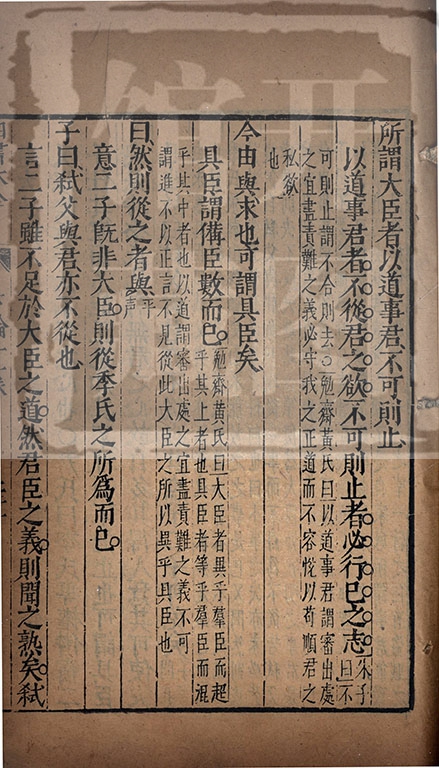 所謂大臣者以道事君不可則止
以道事君者不從君之欲不可則止者必行己之志朱子曰不
可則止謂不合則去○勉齋黃氏曰以道事君謂審出處
之宜盡責難之義必守我之正道而不容悅以苟順君之
私欲
也
今由與求也可謂具臣矣
具臣謂備臣數而已勉齋黃氏曰大臣者異乎羣臣而超
乎其上者也具臣者等乎羣臣而混
乎其中者也以道謂審出處之宜盡責難之義不可
謂進不以正言不見從此大臣之所以異乎具臣也
曰然則從之者與平聲
意二子旣非大臣則從季氏之所爲而已
子曰弑父與君亦不從也
言二子雖不足於大臣之道然君臣之義則聞之熟矣弑